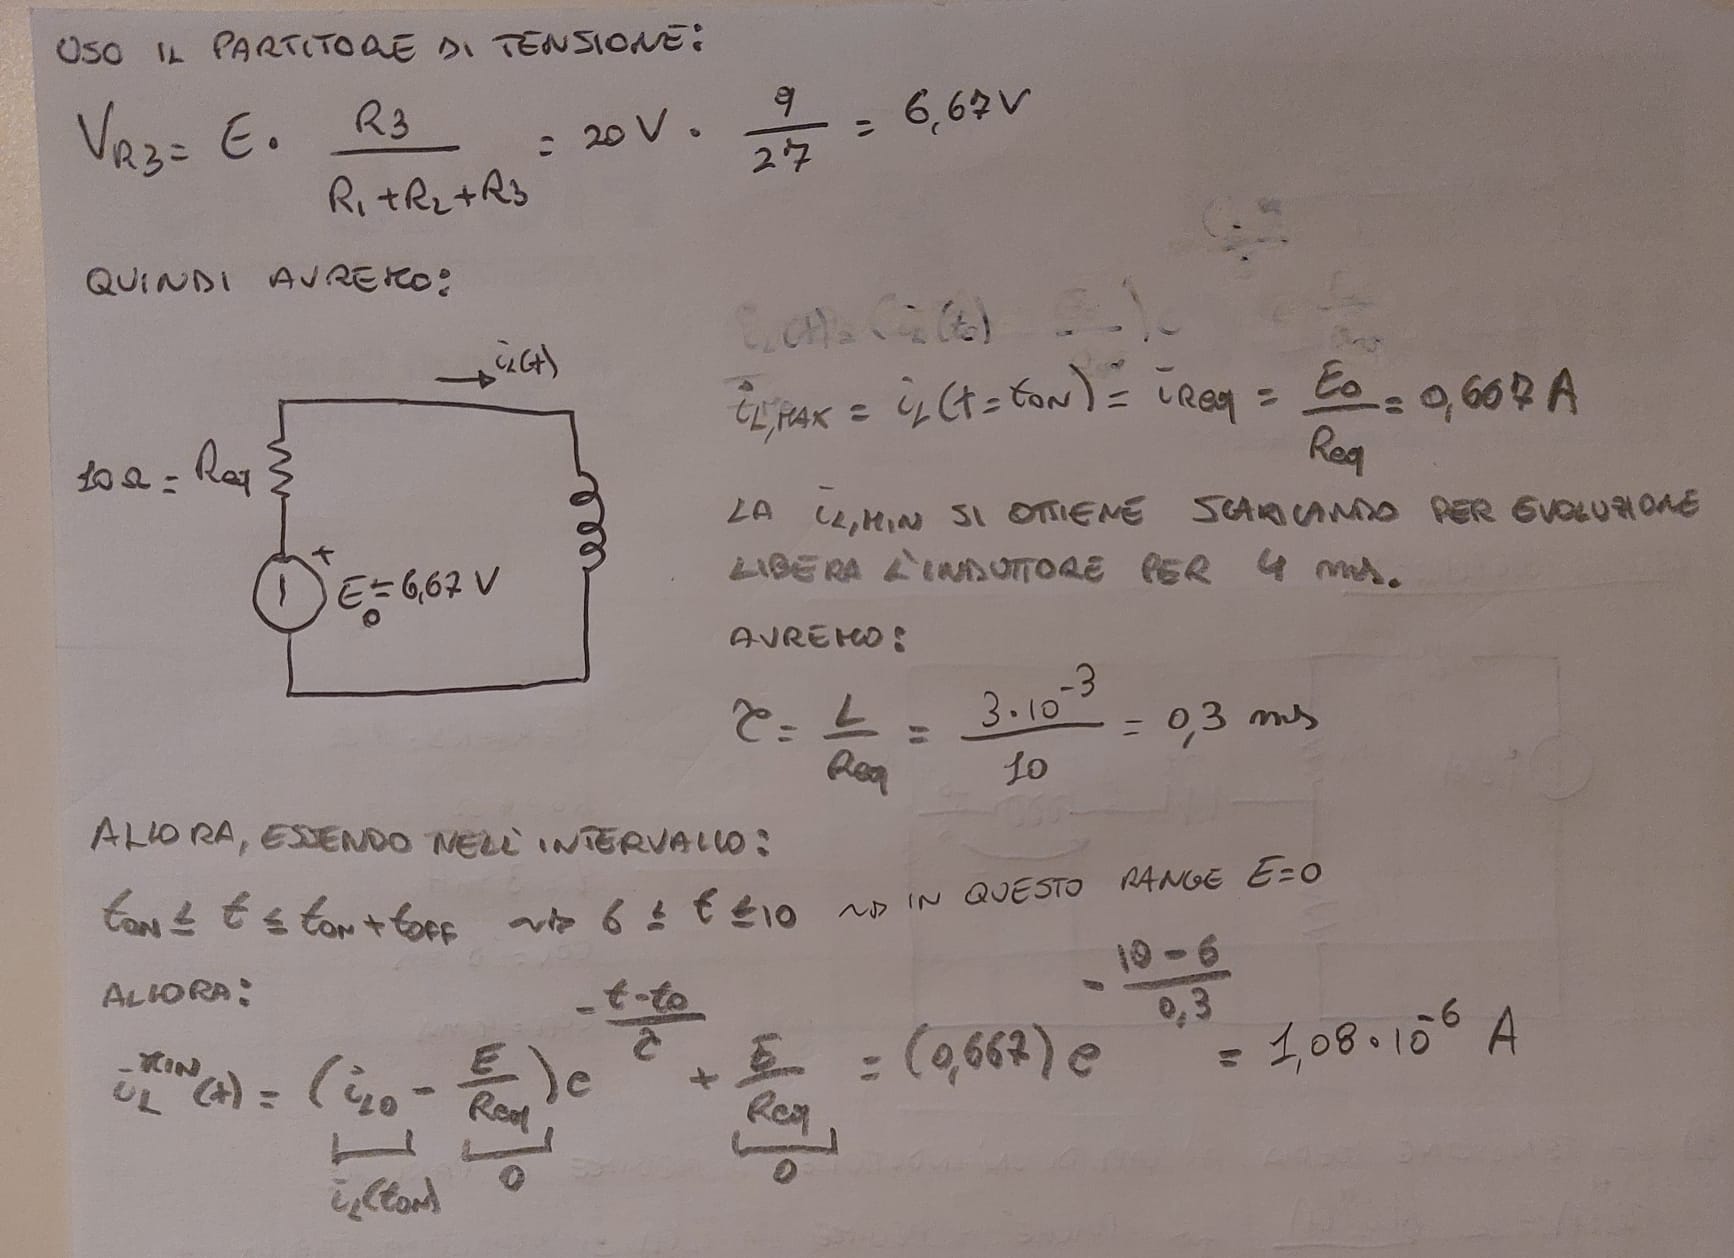 USO IL PARTITORE DI TENSIONE:
VR3 = E · R3 / (R1 + R2 + R3) = 20 V · 9/27 = 6,67 V
QUINDI AVREMO:
iL(t)
10 Ω = Req
+
E0 = 6,67 V
iL,MAX = iL(t = tON) = iReq = E0/Req = 0,667 A
LA iL,MIN SI OTTIENE SCARICANDO PER EVOLUZIONE
LIBERA L'INDUTTORE PER 4 ms.
AVREMO:
τ = L/Req = 3·10^-3 / 10 = 0,3 ms
ALLORA, ESSENDO NELL'INTERVALLO:
tON ≤ t ≤ tON + tOFF ⇝ 6 ≤ t ≤ 10 ⇝ IN QUESTO RANGE E=0
ALLORA:
iL^MIN(t) = (iL0 - E/Req) e^(-(t-t0)/τ) + E/Req = (0,667) e^(-(10-6)/0,3) = 1,08·10^-6 A
iL(tON) 0 0